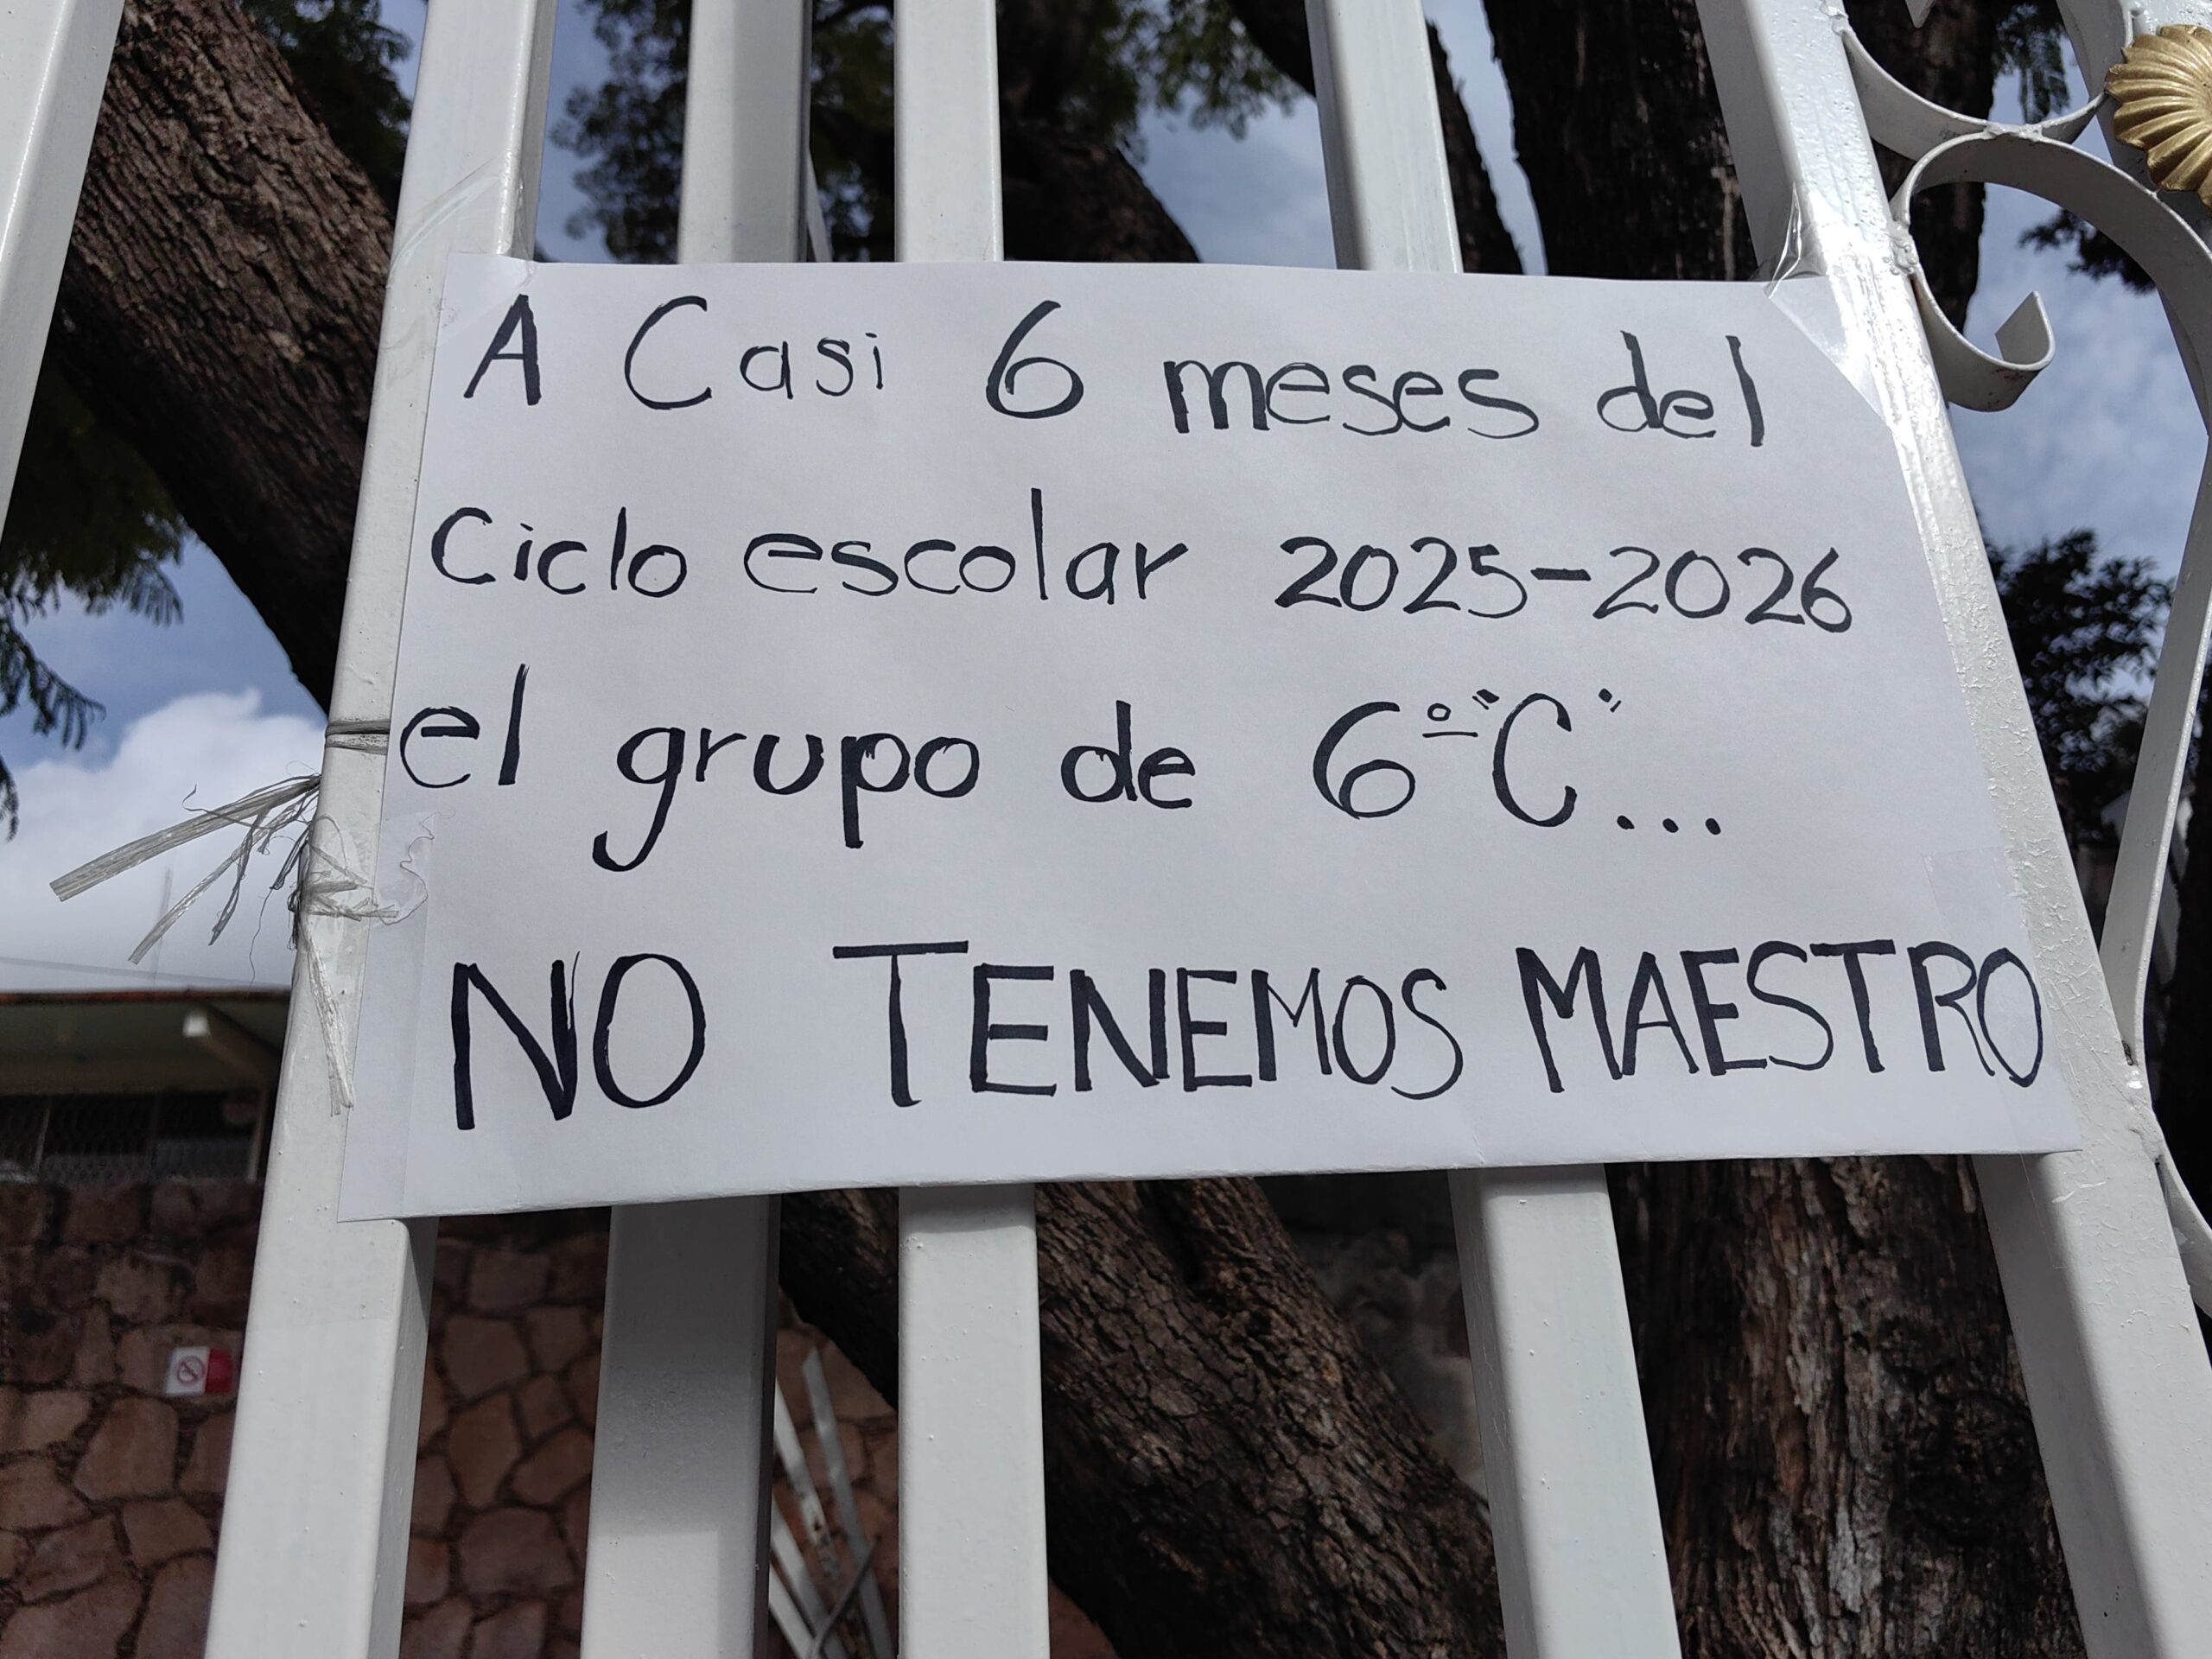 A Casi 6 meses del
Ciclo escolar 2025-2026
el grupo de 6º "C"...
NO TENEMOS MAESTRO